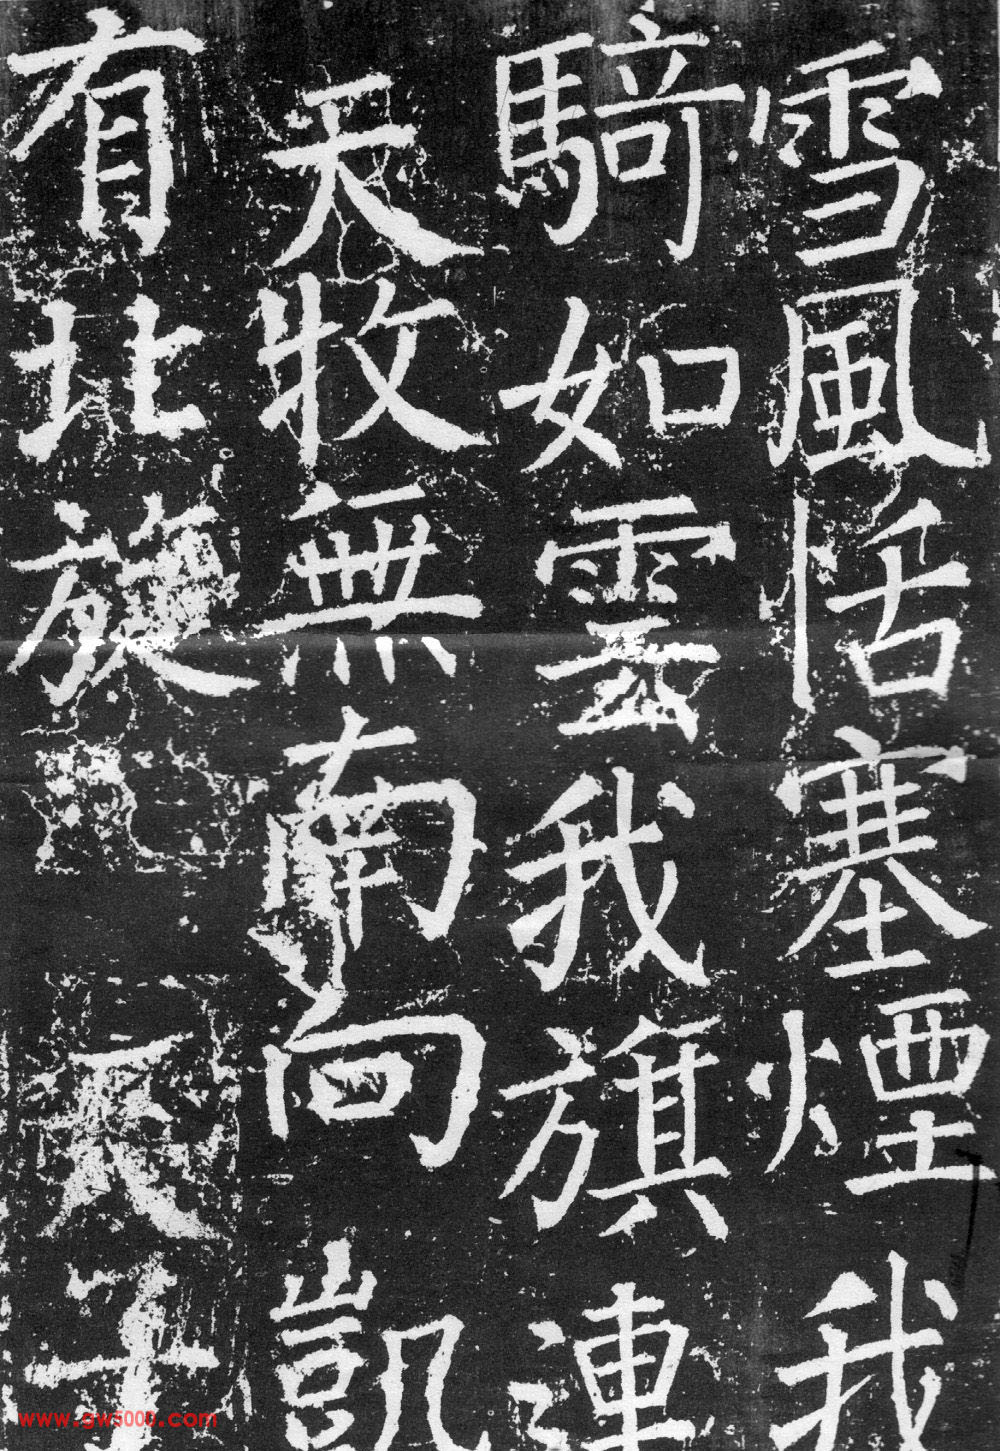 雪風恬塞煙我
騎如雲我旗連
天牧無南向凱
有北旋天子
www.gw5000.com